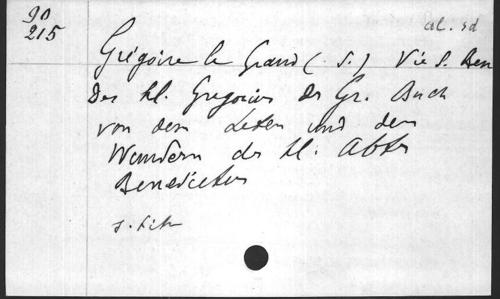 90
215
al. rd
Grégoire le Grand (S.) Vie S. Ben
Des hl. Gregorius des Gr. Buch
von dem Leben und den
Wundern des hl. Abtes
Benedictus